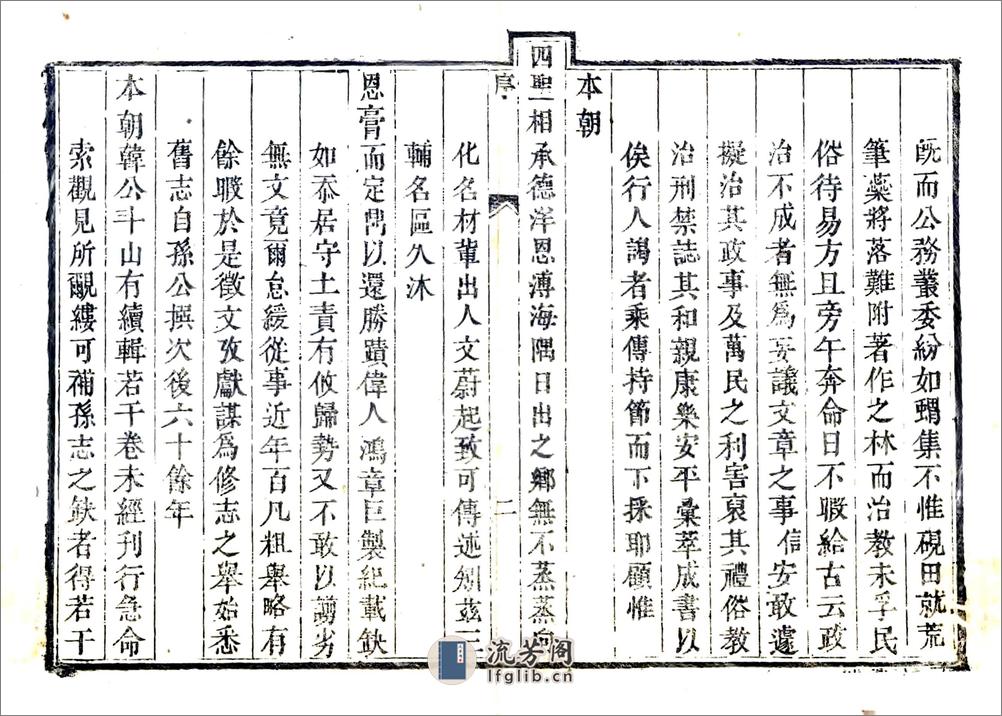 旣而公務叢委紛如蝟集不惟硯田就荒
筆藥將落難附著作之林而治教未孚民
俗待易方且旁午奔命日不暇給古云政
治不成者無爲妄議文章之事信安敢遽
擬治其政事及萬民之利害裒其禮俗教
治刑禁誌其和親康樂安平彙萃成書以
俟行人謁者乘傳持節而下採耶顧惟
本朝
四聖相承德洋恩溥海隅日出之鄉無不蒸蒸向
序
二
化名材輩出人文蔚起致可傳述矧兹三
輔名區久沐
恩膏而定雋以還勝蹟偉人鴻章巨製紀載缺
如忝居守土責有攸歸勢又不敢以谫劣
無文竟爾怠緩從事近年百凡粗舉略有
餘暇於是徵文攷獻謀爲修志之舉始悉
舊志自孫公撰次後六十餘年
本朝韓公斗山有續輯若干卷未經刊行急命
索觀見所覼縷可補孫志之缺者得若干
流芳阁
lfglib.cn